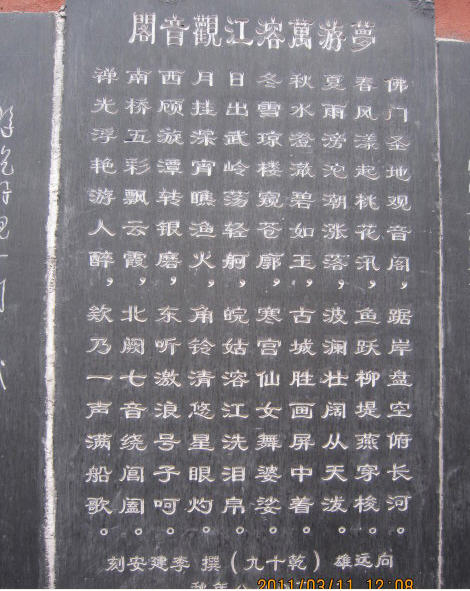 夢游萬溶江觀音閣
佛门圣地观音阁，踞岸盘空俯长河。
春风漾起桃花汛，鱼跃柳堤燕穿梭。
夏雨滂沱潮涨落，波澜壮阔从天泼。
秋水澄澈碧如玉，古城胜画屏中着。
冬雪琼楼窥苍廓，寒宫仙女舞婆娑。
日出武岭荡轻舸，皖姑溶江洗泪帛。
月挂深宵瞧渔火，角铃清悠星眼灼。
西顾漩潭转银磨，东听激浪号子呵。
南桥五彩飘云霞，北阙七音绕阊阖。
禅光浮艳游人醉，欸乃一声满船歌。
向远雄（乾十九）撰 李建安刻
2011/03/11 12:08